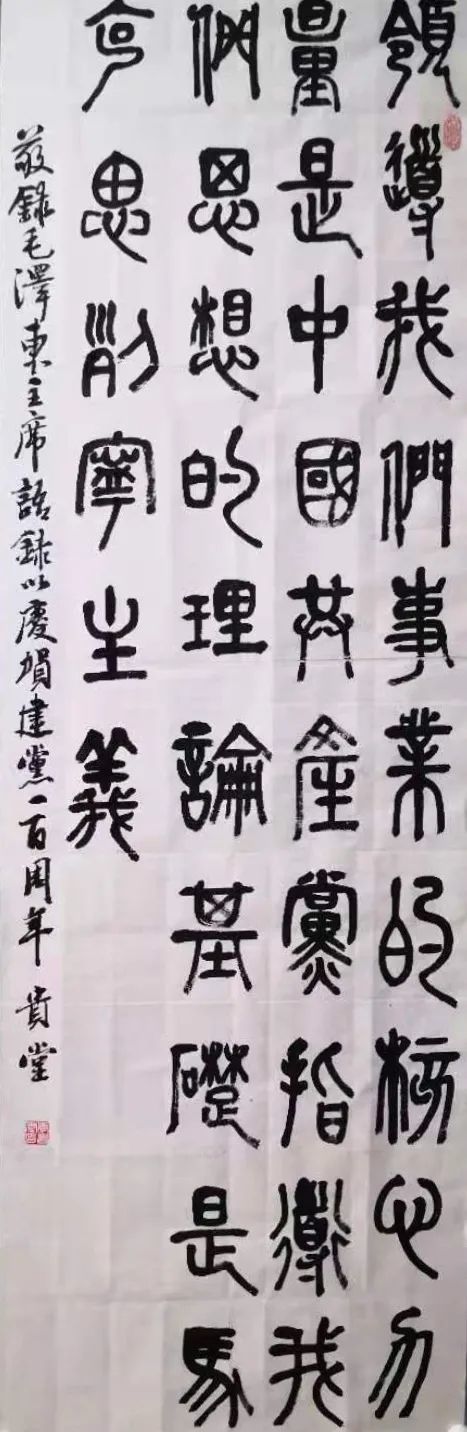 領導我們事業的核心力
量是中國共產黨指導我
們思想的理論基礎是馬
克思列寧主義
敬錄毛澤東主席語錄以慶賀建黨一百周年 貴堂